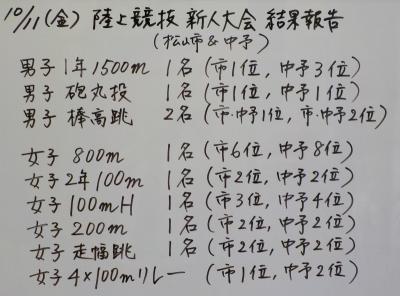 10/11(金) 陸上競技 新人大会 結果報告
(松山市&中予)
男子 1年1500m 1名 (市1位, 中予3位)
男子 砲丸投 1名 (市1位, 中予1位)
男子 棒高跳 2名 (市・中予1位, 市・中予2位)
女子 800m 1名 (市6位, 中予8位)
女子 2年100m 1名 (市2位, 中予2位)
女子 100mH 1名 (市3位, 中予4位)
女子 200m 1名 (市2位, 中予2位)
女子 走幅跳 1名 (市2位, 中予2位)
女子 4×100mリレー (市1位, 中予2位)